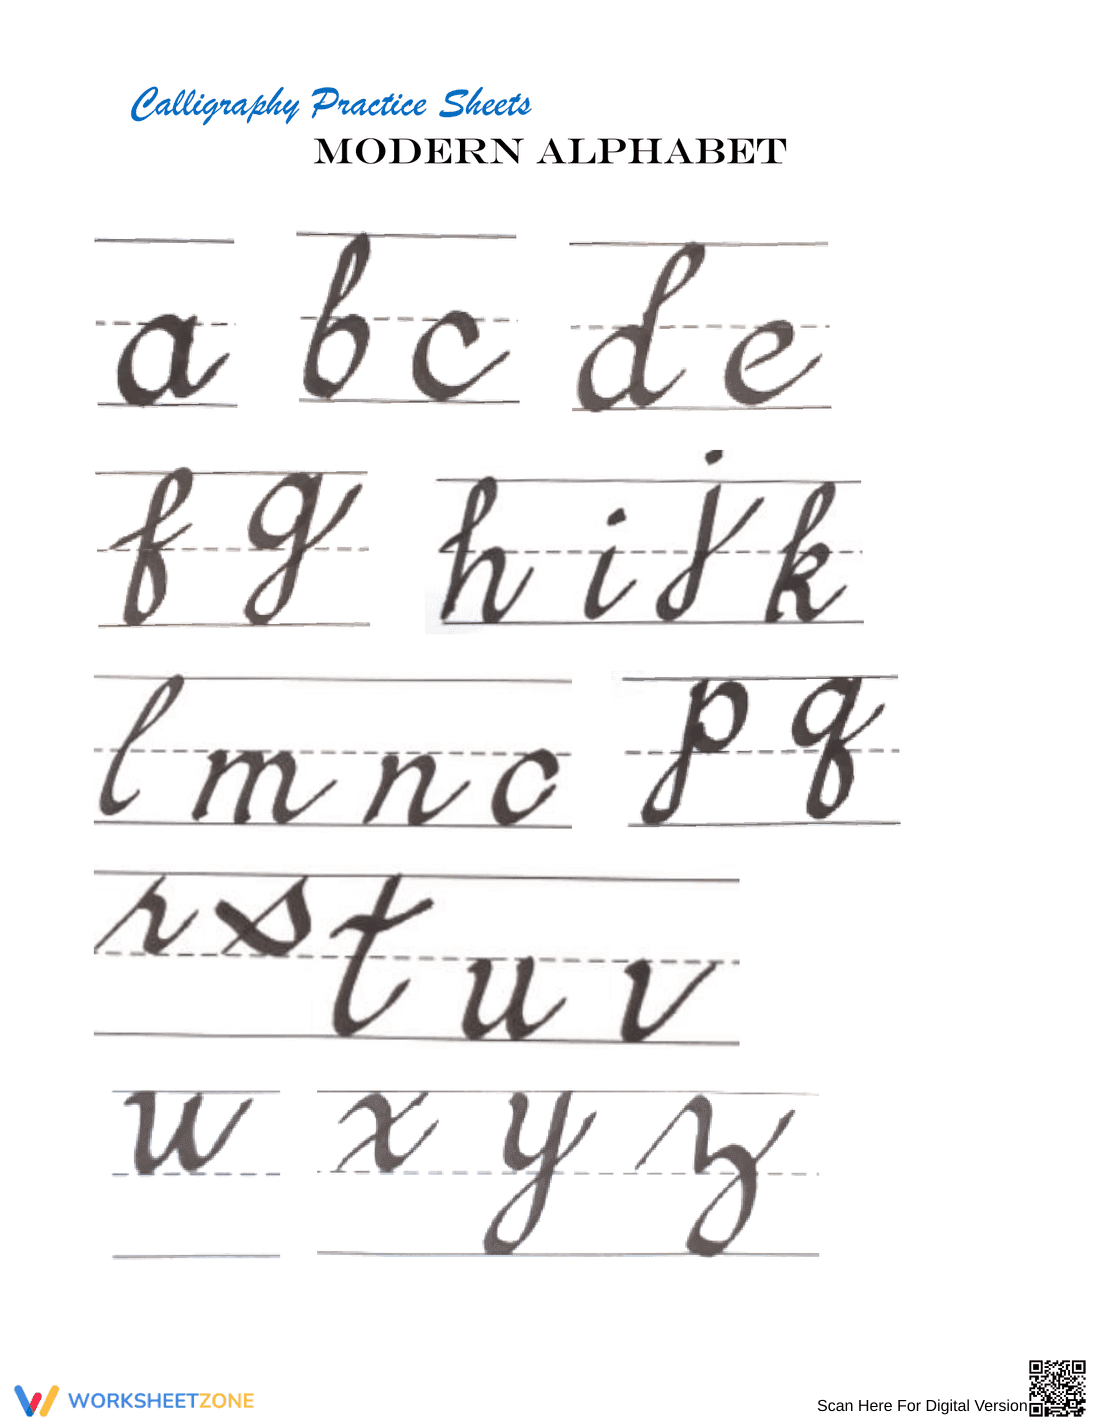 Calligraphy Practice Sheets
MODERN ALPHABET
a b c d e
f g h i j k
l m n o p q
r s t u v
w x y z
WORKSHEETZONE
Scan Here For Digital Version